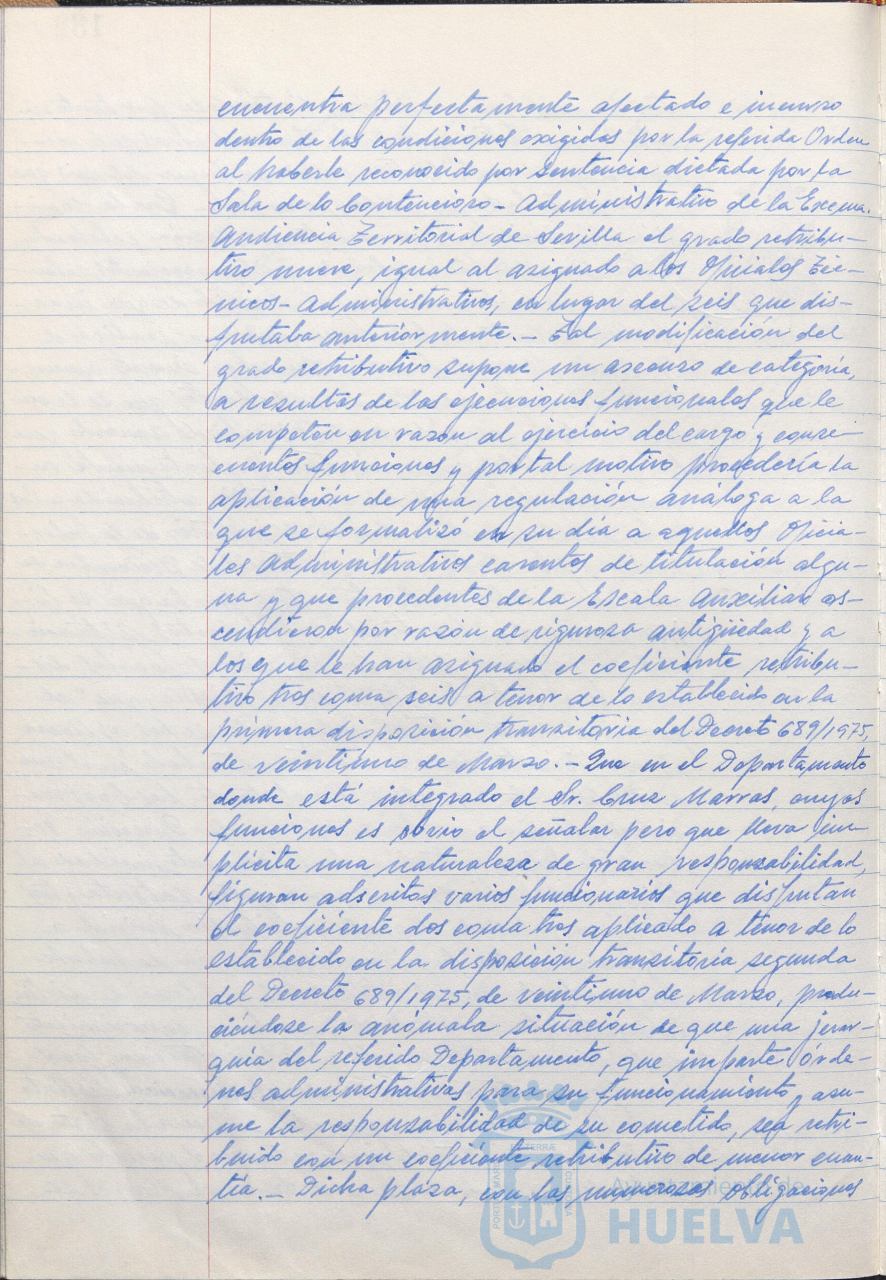 encuentra perfectamente afectado e incurso
dentro de las condiciones exigidas por la referida Orden
al haberle reconocido por sentencia dictada por la
Sala de lo Contencioso-Administrativo de la Excma.
Audiencia Territorial de Sevilla el grado retribu-
tivo nueve, igual al asignado a los Oficiales Téc-
nicos-Administrativos, en lugar del seis que dis-
frutaba anteriormente.- Tal modificación del
grado retributivo supone un ascenso de categoría,
a resultas de las ejecuciones funcionales que le
competen en razón al ejercicio del cargo y
funciones y por tal motivo procedería la
aplicación de una regulación análoga a la
que se formalizó en su día a aquellos Oficia-
les Administrativos carentes de titulación algu-
na y que procedentes de la Escala Auxiliar as-
cendieron por razón de rigurosa antigüedad y a
los que le han asignado el coeficiente retribu-
tivo tres coma seis a tenor de lo establecido en la
primera disposición transitoria del Decreto 689/1975,
de veintiuno de Marzo.- Que en el Departamento
donde está integrado el Sr. Cruz Marras, cuyas
funciones es obvio el señalar pero que lleva im-
plícita una naturaleza de gran responsabilidad,
figuran adscritos varios funcionarios que disfrutan
el coeficiente dos coma tres aplicado a tenor de lo
establecido en la disposición transitoria segunda
del Decreto 689/1975, de veintiuno de Marzo, produ-
ciéndose la anómala situación de que una jerar-
quía del referido Departamento, que imparte órde-
nes administrativas para su funcionamiento y asu-
me la responsabilidad de su cometido, sea retri-
buido con un coeficiente retributivo de menor cuan-
tía.- Dicha plaza, con las numerosas obligaciones
Ayuntamiento de
HUELVA